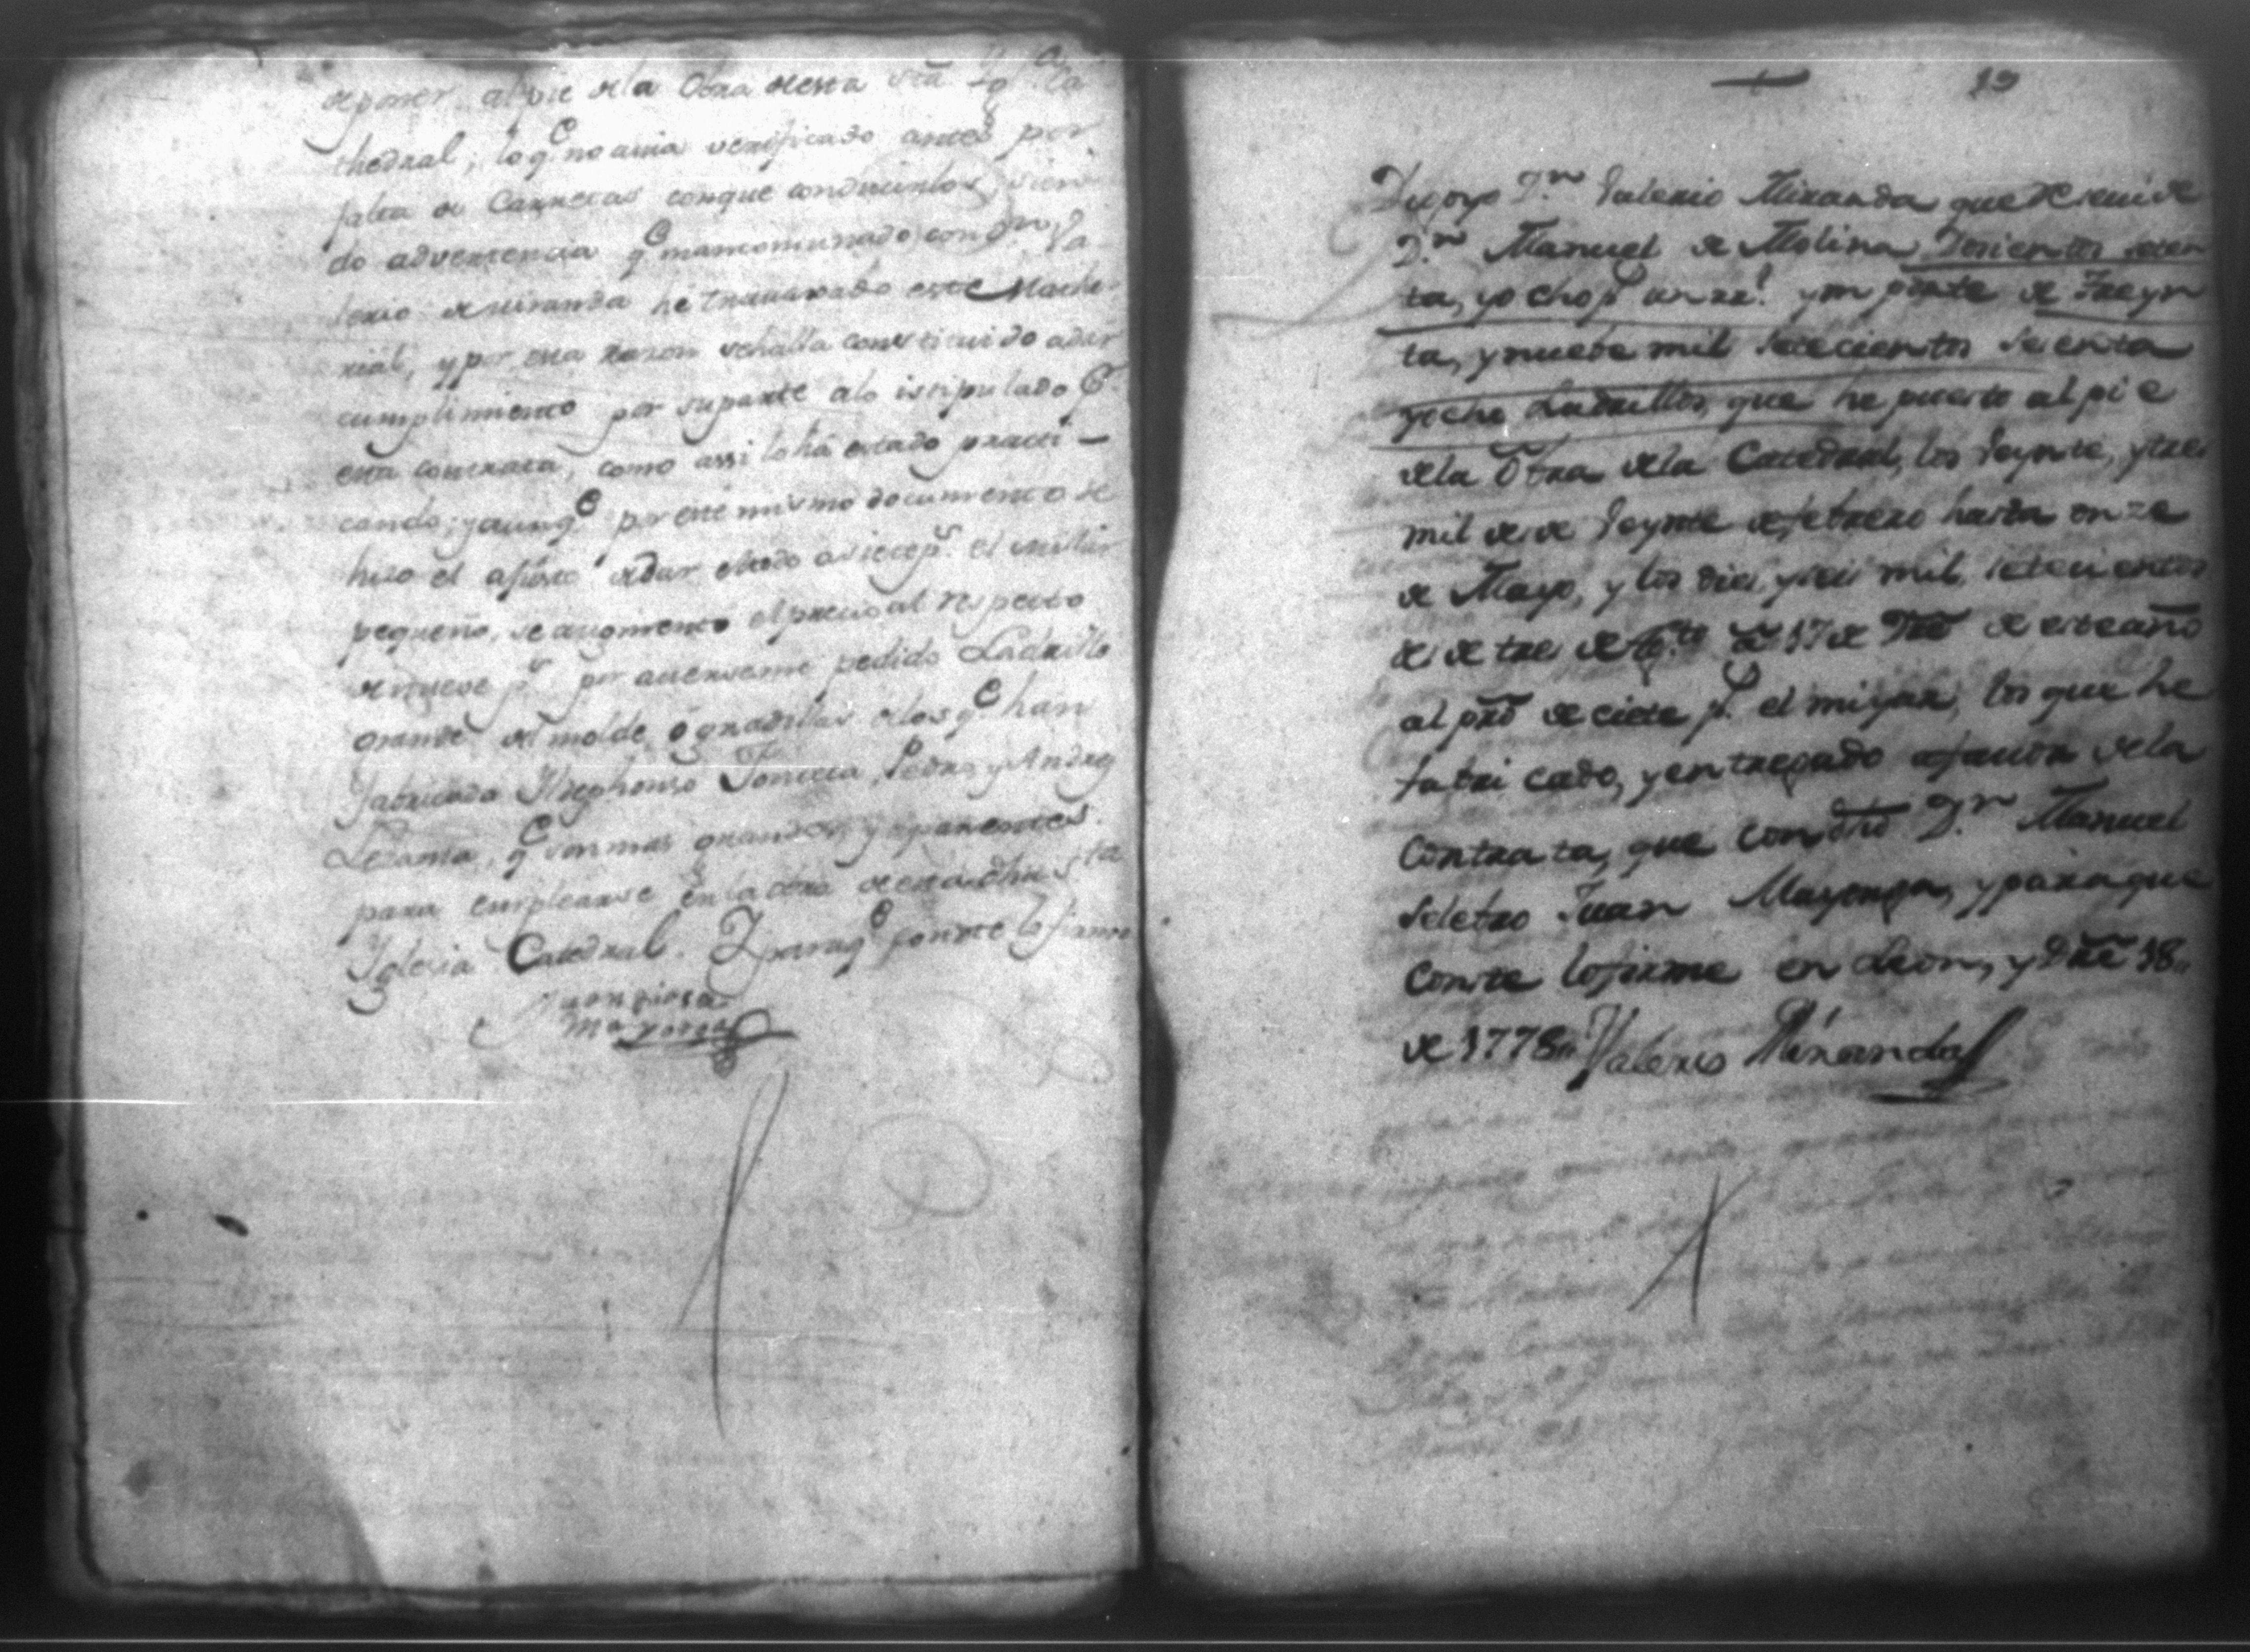 de poner al pie dela Obra desta Sta Ygla Ca
thedral, lo qe. no avia verificado antes por
falta de Carretas conque conducirlos, sien
do advertencia qe mancomunado con Dn Va
lerio de Miranda he travaxado este Mathe
rial, y por esta razon se halla constituido a dar
cumplimiento por su parte alo istipulado
esta contrata, como assi lo há estado practi-
cando; y aunqe por este mismo documento se
hizo el ajuste de dar a siete ps. el millar
pequeño, se augmentó el precio al respecto
de nueve ps por averseme pedido Ladrillo
grande del molde ó gradillas de los qe. han
fabricado Ildephonso Fonseca, Pedro, y Andres
Ledesma, qe son mas grandes y aparentes
para emplearse en la obra de esta dha Sta
Yglesia Catedral. Y para qe conste lo firmo
Juan
Mayorga
19
Digo yo Dn. Valerio Miranda que Reciví de
Dn. Manuel de Molina Dosientos seten
ta, y ocho ps un rrl. ym porte de Treyn
ta, y nueve mil setecientos setenta
y ocho Ladrillos, que he puesto al pie
dela Obra dela Catedral, los veynte, y tres
mil desde veynte de febrero hasta onze
de Mayo, y los dies, y seis mil setecientos
desde tres de 17 de de este año
al preo de ciete ps. el miyar, los que he
fabricado, y entregado a favor dela
Contrata, que con dho Dn. Manuel
seletro Juan Mayorga, y para que
Conste lo firme en Leon, y Dre 18,,
de 1778,, Valerio Miranda